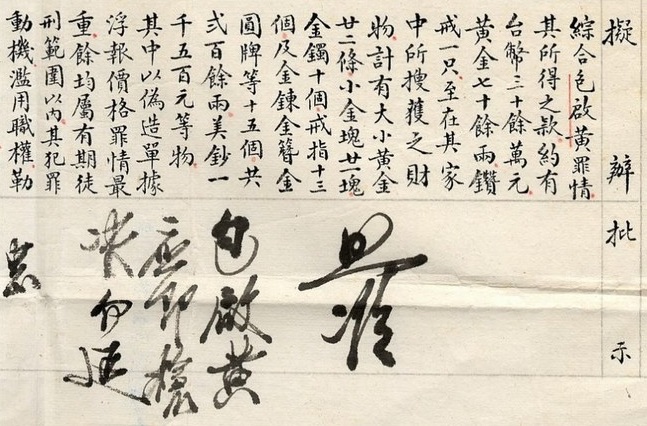 擬辦
綜合包啟黃罪情
其所得之款約有
台幣三十餘萬元
黃金七十餘兩鑽
戒一只至在其家
中所搜獲之財
物計有大小黃金
廿二條小金塊廿一塊
金鐲十個戒指十三
個及金鍊金簪金
圓牌等十五個共
弍百餘兩美鈔一
千五百元等物
其中以偽造單據
浮報價格罪情最
重餘均屬有期徒
刑範圍以內其犯罪
動機濫用職權勒
批示
准
包啟黃
應即槍
決勿延